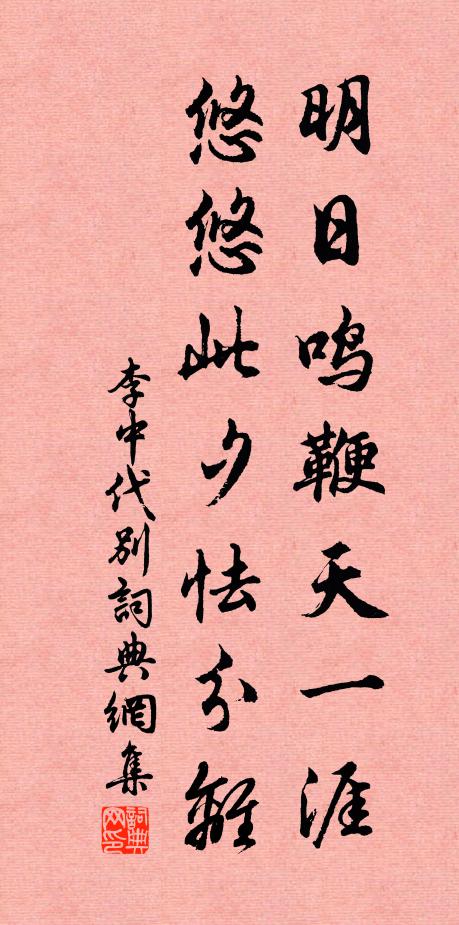 明日鸣鞭天一涯
悠悠此夕怯分離
李中代别詞典網集
詞典网印